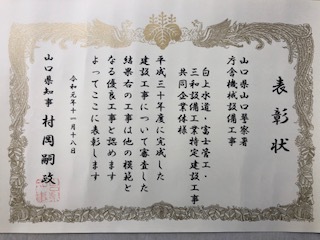 表彰状
山口県山口警察署
庁舎機械設備工事
白上水道・富士管工・
三和設備工業特定建設工事
共同企業体様
平成三十年度に完成した
建設工事について審査した
結果右の工事は他の模範と
なる優良工事と認めます
よってここに表彰します
令和元年十一月十八日
山口県知事 村岡嗣政